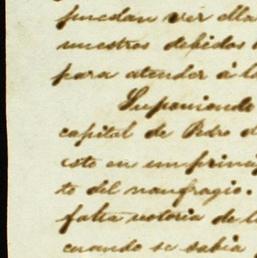 puedan ver ella
nuestros debidos
para atender á la
Suponiendo
capital de Pedro
esto en un princi
to del naufragio.
falta notoria de l
cuando se sabia